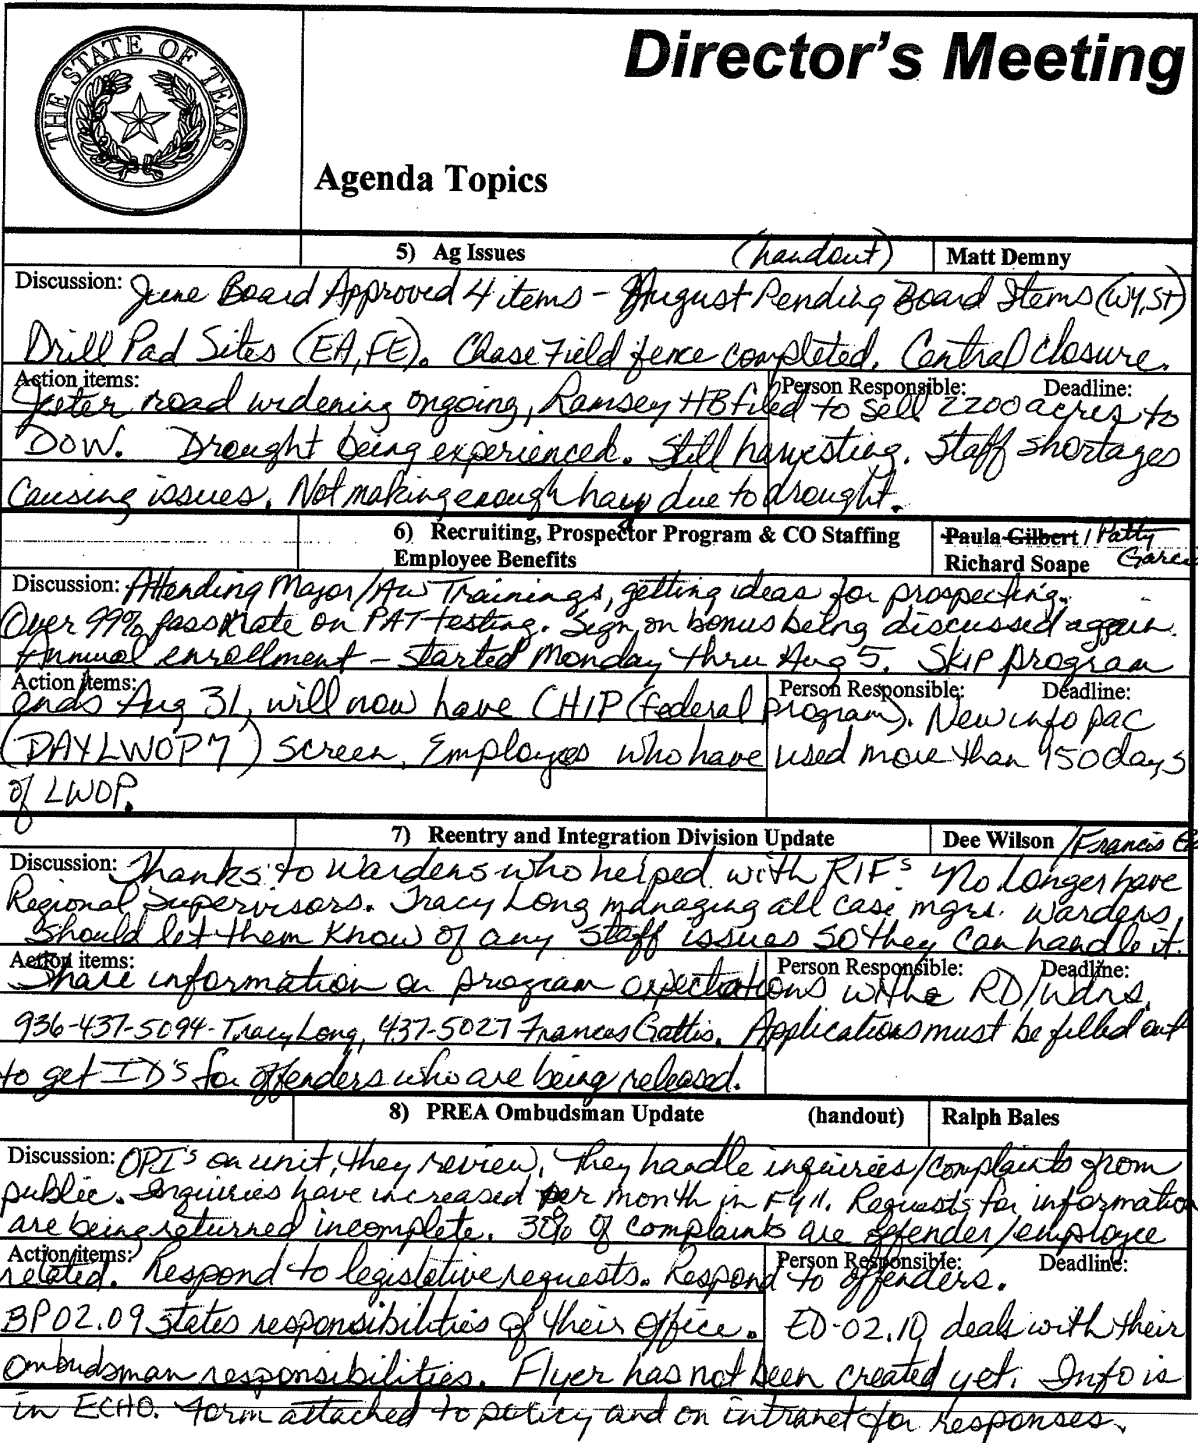 THE STATE OF TEXAS
Director's Meeting
Agenda Topics
5) Ag Issues (handout) Matt Demny
Discussion: June Board Approved 4 items - August Pending Board Items (WY, ST)
Drill Pad Sites (EA, FE). Chase Field fence completed. Central closure.
Action items: Person Responsible: Deadline:
Jester road widening ongoing, Ramsey HB filed to sell 2200 acres to
DOW. Drought being experienced. Still harvesting. Staff shortages
causing issues. Not making enough hay due to drought.
6) Recruiting, Prospector Program & CO Staffing Paula Gilbert / Patty
Employee Benefits Richard Soape Garcia
Discussion: Attending Major/AW Trainings, getting ideas for prospecting.
Over 99% pass rate on PAT testing. Sign on bonus being discussed again.
Annual enrollment - started Monday thru Aug 5. SKIP program
Action items: Person Responsible: Deadline:
ends Aug 31, will now have CHIP (Federal program). New info pac
(DAYLWOP7) screen, Employees who have used more than 950 days
of LWOP.
7) Reentry and Integration Division Update Dee Wilson / Francis
Discussion: Thanks to Wardens who helped with RIF's. No longer have
Regional Supervisors. Tracy Long managing all case mgrs. Wardens
should let them know of any staff issues so they can handle it.
Action items: Person Responsible: Deadline:
Share information on program expectations with RD/Wdns.
936-437-5094-Tracy Long, 437-5027 Frances Gattis. Applications must be filled out
to get ID's for offenders who are being released.
8) PREA Ombudsman Update (handout) Ralph Bales
Discussion: OPI's on unit, they review, they handle inquiries/complaints from
public. Inquiries have increased per month in FY11. Requests for information
are being returned incomplete. 30% of complaints are offender/employee
Action items: Person Responsible: Deadline:
related. Respond to legislative requests. Respond to offenders.
BP 02.09 states responsibilities of their office. ED-02.10 deals with their
ombudsman responsibilities. Flyer has not been created yet. Info is
in ECHO. Form attached to policy and on intranet for responses.